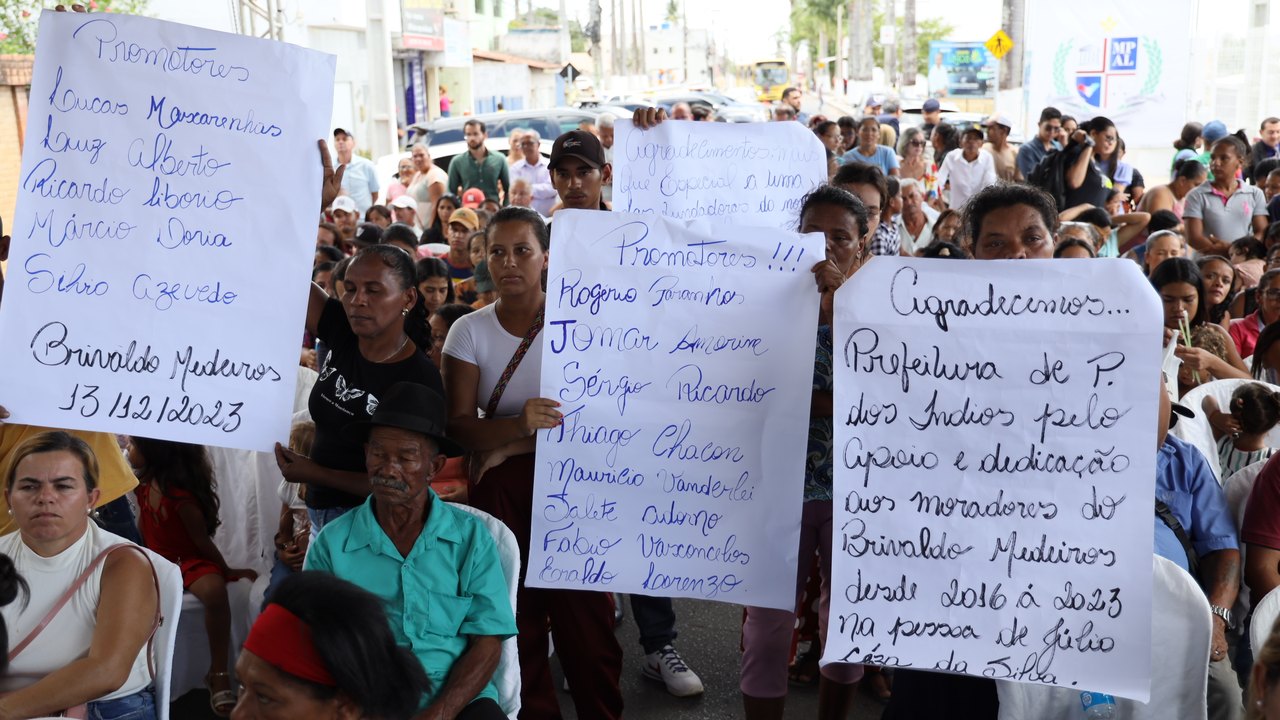 Promotores
Lucas Mascarenhas
Luiz Alberto
Ricardo Liborio
Márcio Doria
Silvio Azevedo
Brivaldo Medeiros
13/12/2023
Agradecimentos mais
que Especial a uma
das fundadoras do
Promotores !!!
Rogério Paranhos
Jomar Amorim
Sérgio Ricardo
Thiago Chacon
Mauricio Vanderlei
Salete
Fábio Vasconcelos
Eraldo Lorenzo.
Agradecemos...
Prefeitura de P.
dos Índios pelo
Apoio e dedicação
aos moradores do
Brivaldo Medeiros
desde 2016 á 2023
na pessoa de Júlio
Cézar da Silva.
MP
AL